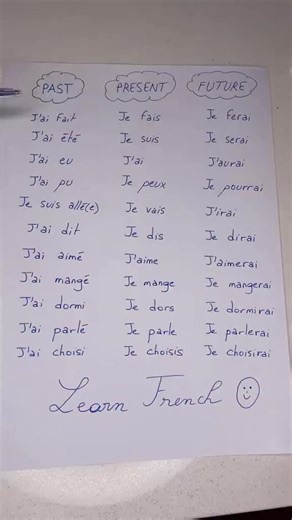 PAST PRESENT FUTURE
J'ai fait Je fais Je ferai
J'ai été Je suis Je serai
J'ai eu J'ai J'aurai
J'ai pu Je peux Je pourrai
Je suis allé(e) Je vais J'irai
J'ai dit Je dis Je dirai
J'ai aimé J'aime J'aimerai
J'ai mangé Je mange Je mangerai
J'ai dormi Je dors Je dormirai
J'ai parlé Je parle Je parlerai
J'ai choisi Je choisis Je choisirai
Learn French